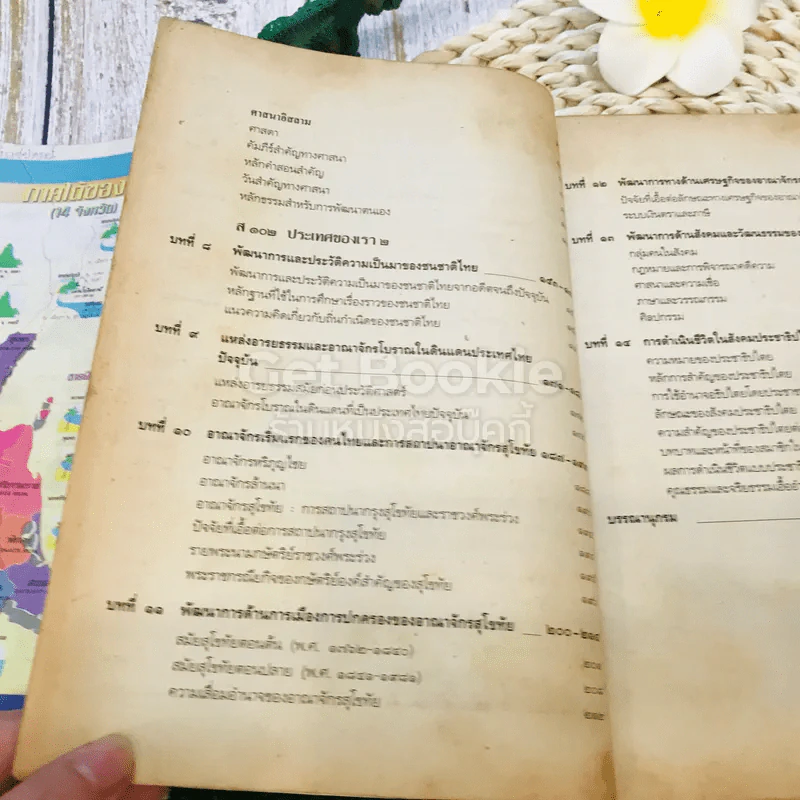 ภาคใต้ของ
(14 จังหวัด)
ศาสนาอิสลาม
ศาสดา
คัมภีร์สำคัญทางศาสนา
หลักคำสอนสำคัญ
วันสำคัญทางศาสนา
หลักธรรมสำหรับการพัฒนาตนเอง
ส ๑๐๒ ประเทศของเรา ๒
บทที่ ๘ พัฒนาการและประวัติความเป็นมาของชนชาติไทย
พัฒนาการและประวัติความเป็นมาของชนชาติไทยจากอดีตจนถึงปัจจุบัน
หลักฐานที่ใช้ในการศึกษาเรื่องราวของชนชาติไทย
แนวความคิดเกี่ยวกับถิ่นกำเนิดของชนชาติไทย
บทที่ ๙ แหล่งอารยธรรมและอาณาจักรโบราณในดินแดนประเทศไทย
ปัจจุบัน
แหล่งอารยธรรมสมัยก่อนประวัติศาสตร์
อาณาจักรโบราณในดินแดนที่เป็นประเทศไทยปัจจุบัน
บทที่ ๑๐ อาณาจักรเริ่มแรกของคนไทยและการสถาปนาอาณาจักรสุโขทัย
อาณาจักรหริภุญไชย
อาณาจักรล้านนา
อาณาจักรสุโขทัย : การสถาปนากรุงสุโขทัยและราชวงศ์พระร่วง
ปัจจัยที่เอื้อต่อการสถาปนากรุงสุโขทัย
รายพระนามกษัตริย์ราชวงศ์พระร่วง
พระราชกรณียกิจของกษัตริย์องค์สำคัญของสุโขทัย
บทที่ ๑๑ พัฒนาการด้านการเมืองการปกครองของอาณาจักรสุโขทัย ๒๐๐-๒๑๔
สมัยสุโขทัยตอนต้น (พ.ศ. ๑๗๖๒-๑๘๔๐)
๒๐๑
สมัยสุโขทัยตอนปลาย (พ.ศ. ๑๘๔๑-๑๙๘๑)
๒๐๘
ความเสื่อมอำนาจของอาณาจักรสุโขทัย
๒๑๒
บทที่ ๑๒ พัฒนาการทางด้านเศรษฐกิจของอาณาจักร
ปัจจัยที่เอื้อต่อลักษณะทางเศรษฐกิจของอาณา
ระบบเงินตราและภาษี
บทที่ ๑๓ พัฒนาการด้านสังคมและวัฒนธรรมของ
กลุ่มคนในสังคม
กฎหมายและการพิจารณาคดีความ
ศาสนาและความเชื่อ
ภาษาและวรรณกรรม
ศิลปกรรม
บทที่ ๑๔ การดำเนินชีวิตในสังคมประชาธิปไ
ความหมายของประชาธิปไตย
หลักการสำคัญของประชาธิปไตย
การใช้อำนาจอธิปไตยโดยประชา
ลักษณะของสังคมประชาธิปไตย
ความสำคัญของประชาธิปไตยต่อ
บทบาทและหน้าที่ของสมาชิกใน
ผลการดำเนินชีวิตแบบประชาธิ
คุณธรรมและจริยธรรมเอื้ออำ
บรรณานุกรม
Get Bookie
ร้านหนังสือบุ๊คกี้